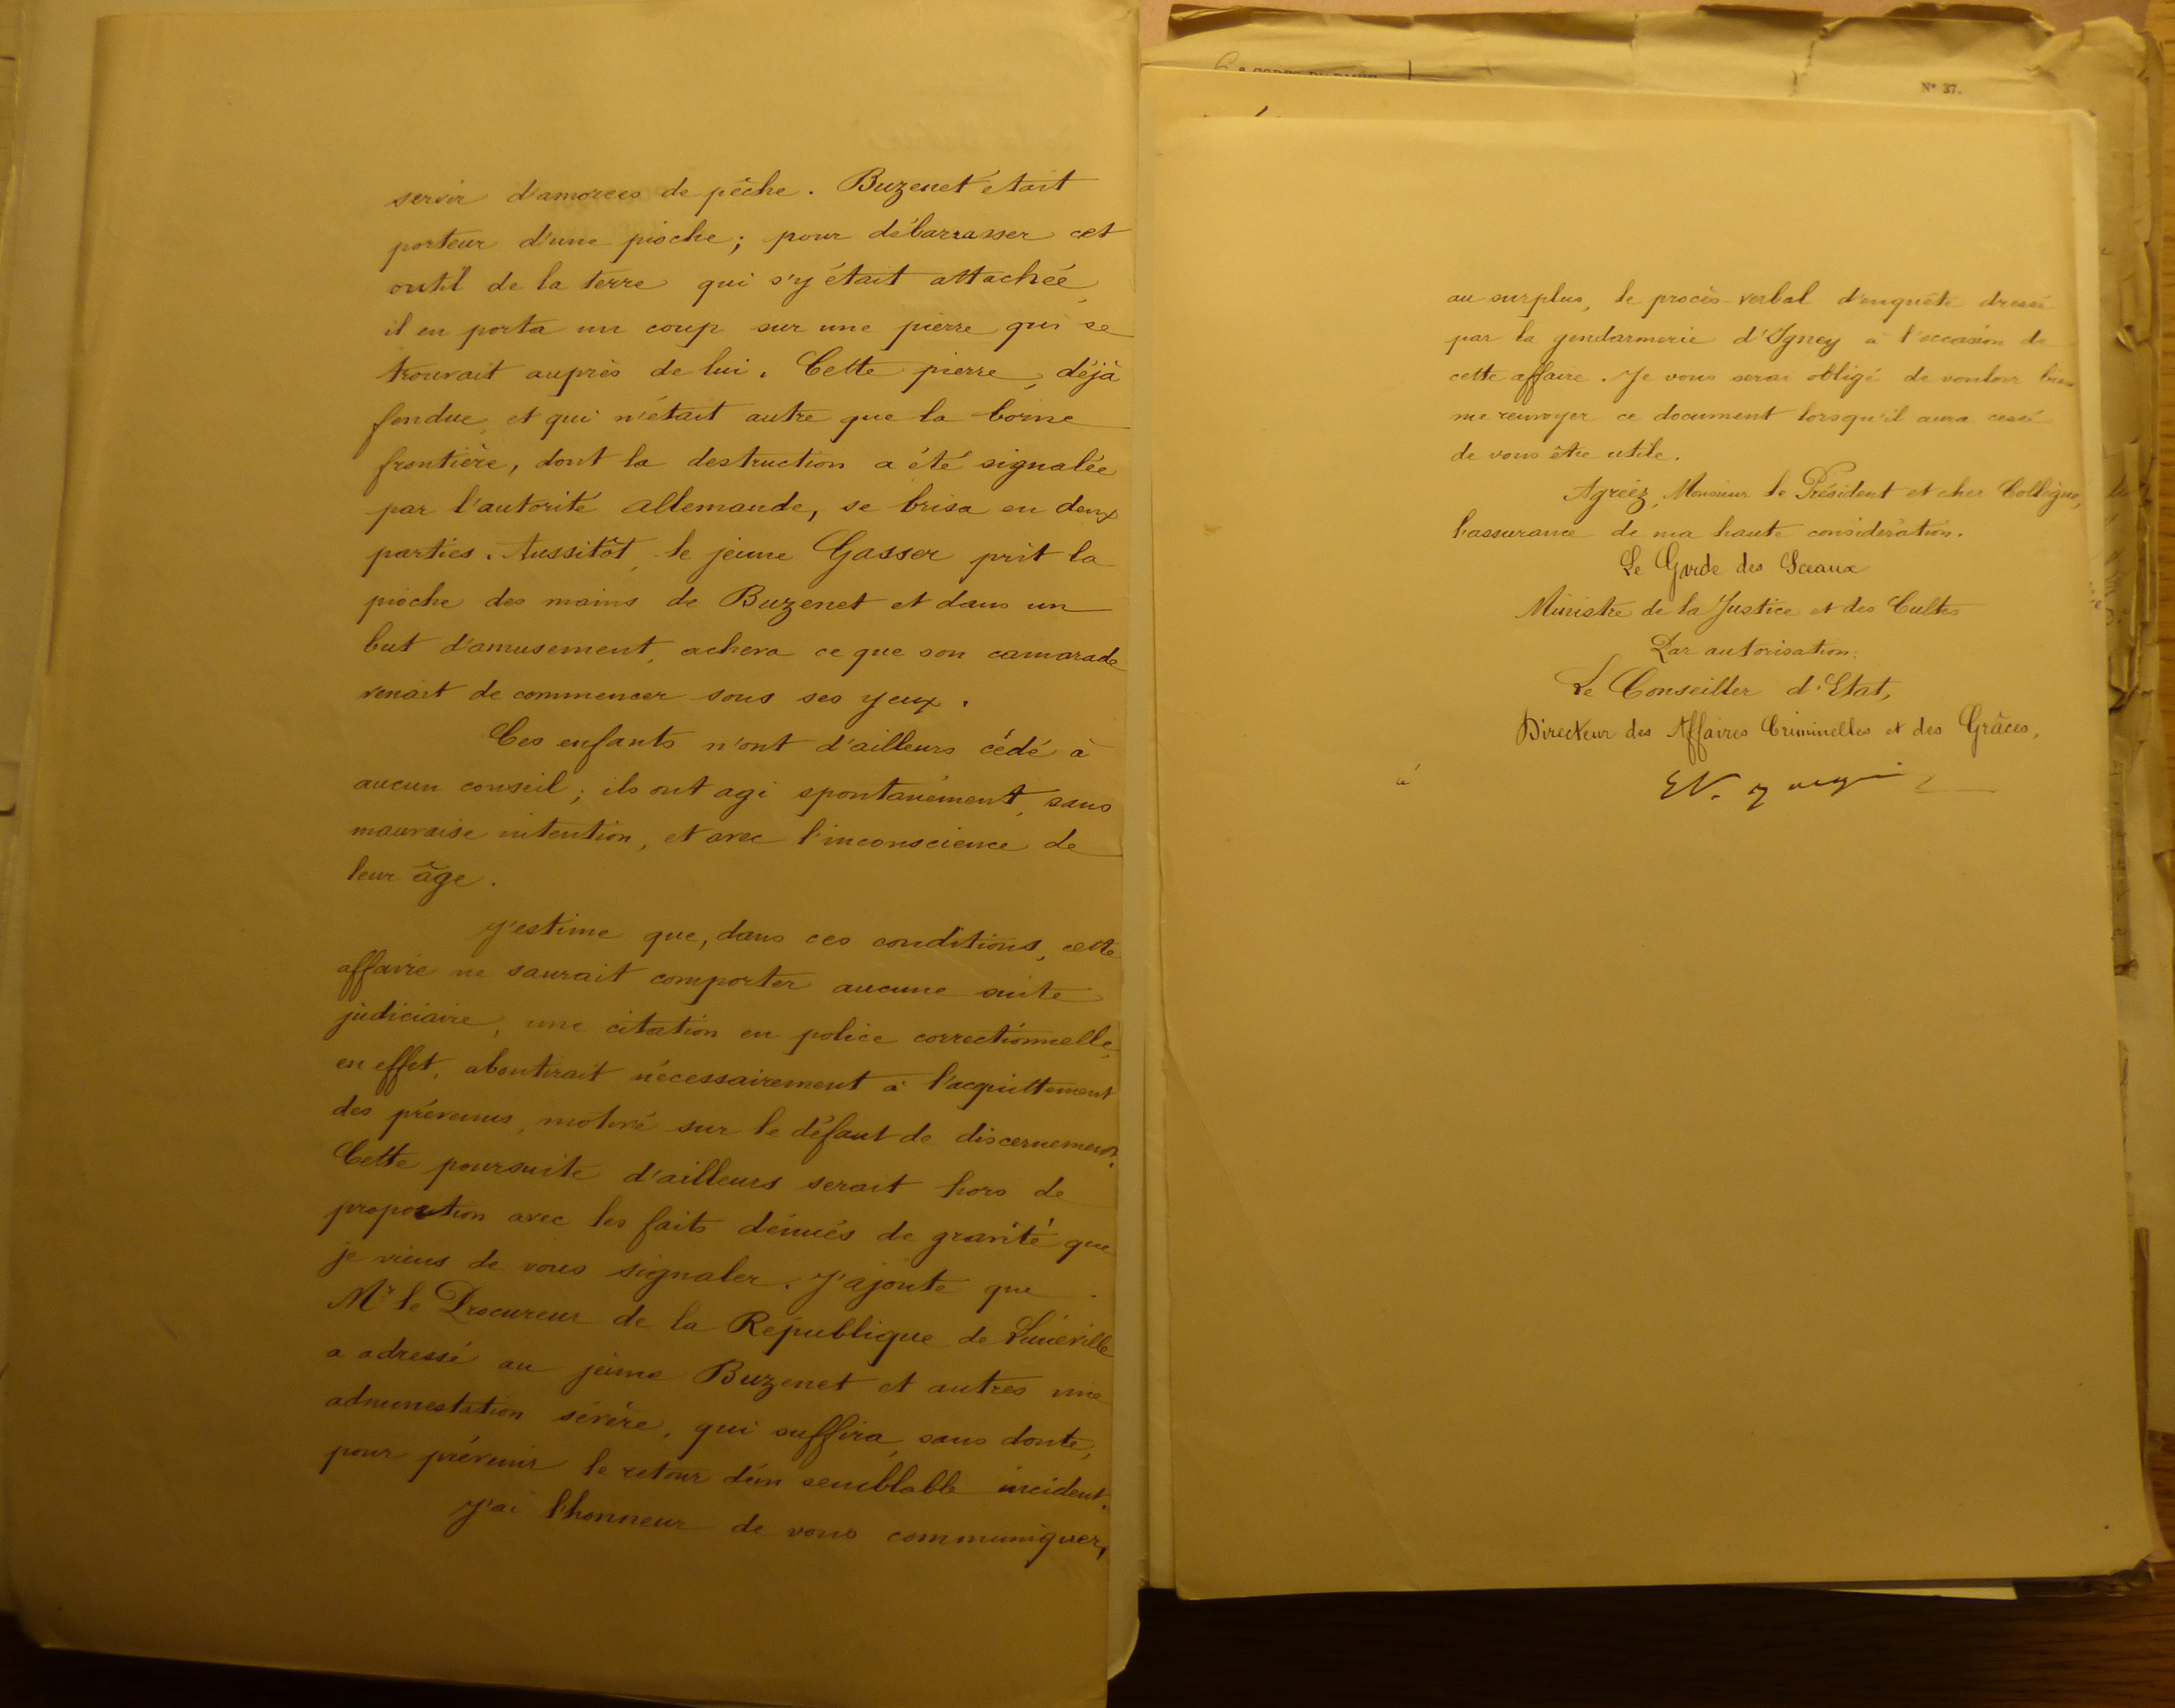 servir d'amorces de pêche. Buzenet était
porteur d'une pioche; pour débarrasser cet
outil de la terre qui s'y était attachée,
il en porta un coup sur une pierre qui se
trouvait auprès de lui. Cette pierre, déjà
fendue, et qui n'était autre que la borne
frontière, dont la destruction a été signalée
par l'autorité allemande, se brisa en deux
parties. Aussitôt, le jeune Gasser prit la
pioche des mains de Buzenet et dans un
but d'amusement, acheva ce que son camarade
venait de commencer sous ses yeux.
Ces enfants n'ont d'ailleurs cédé à
aucun conseil; ils ont agi spontanément, sans
mauvaise intention, et avec l'inconscience de
leur âge.
J'estime que, dans ces conditions, cette
affaire ne saurait comporter aucune suite
judiciaire, une citation en police correctionnelle,
en effet, aboutirait nécessairement à l'acquittement
des prévenus, motivé sur le défaut de discernement.
Cette poursuite d'ailleurs serait hors de
proportion avec les faits dénués de gravité que
je viens de vous signaler. J'ajoute que
Mr le Procureur de la République de Lunéville
a adressé au jeune Buzenet et autres une
admonestation sévère, qui suffira, sans doute,
pour prévenir le retour d'un semblable incident.
J'ai l'honneur de vous communiquer,
N° 37.
au surplus, le procès-verbal d'enquête dressé
par la gendarmerie d'Igney à l'occasion de
cette affaire. Je vous serai obligé de vouloir bien
me renvoyer ce document lorsqu'il aura cessé
de vous être utile.
Agréez, Monsieur le Président et cher Collègue,
l'assurance de ma haute considération.
Le Garde des Sceaux
Ministre de la Justice et des Cultes
Par autorisation:
Le Conseiller d'Etat,
Directeur des Affaires Criminelles et des Grâces,